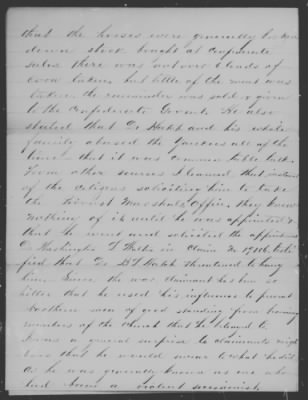 that the horses were generally broken
down stock bought at confiscate
sales there was not over 2 loads of
corn taken but little of the meat was
taken the remainder was sold & given
to the Confederate Govmt. He also
stated that Dr Hatch and his whole
family abused the Yankees all of the
time that it was common table talk
From other sources I learned that instead
of the citizens soliciting him to take
the Provost Marshals Office, they knew
nothing of it until he was appointed &
that he went and solicited the appointment
Washington in Claim No testi-
fied that Dr Hatch threatened to hang
him. Since the war claimant has been so
bitter that he used his influence to prevent
Northern men of good standing from becoming
members of the Church that he belonged to
It was a general surprise to claimants neigh
bors that he would swear to what he did
as he was generally known as one who
had been a violent secessionist